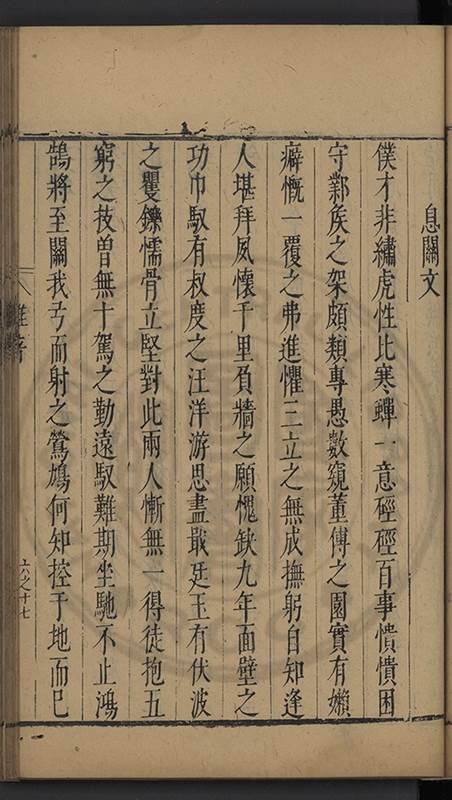 息關文
僕才非繡虎性比寒蟬一意硜硜百事憒憒困
守鄴矦之架頗類專愚數窺董傅之園實有嬾
癖慨一覆之弗進懼三立之無成撫躬自知逢
人堪拜夙懷千里負牆之願愧缺九年面壁之
功巾馭有叔度之汪洋游思盡戢廷玉有伏波
之矍鑠懦骨立堅對此兩人慚無一得徒抱五
窮之技曾無十駕之勤遠馭難期坐馳不止鴻
鵠將至關我弓而射之鷽鳩何知控于地而已
雜著
六之十七